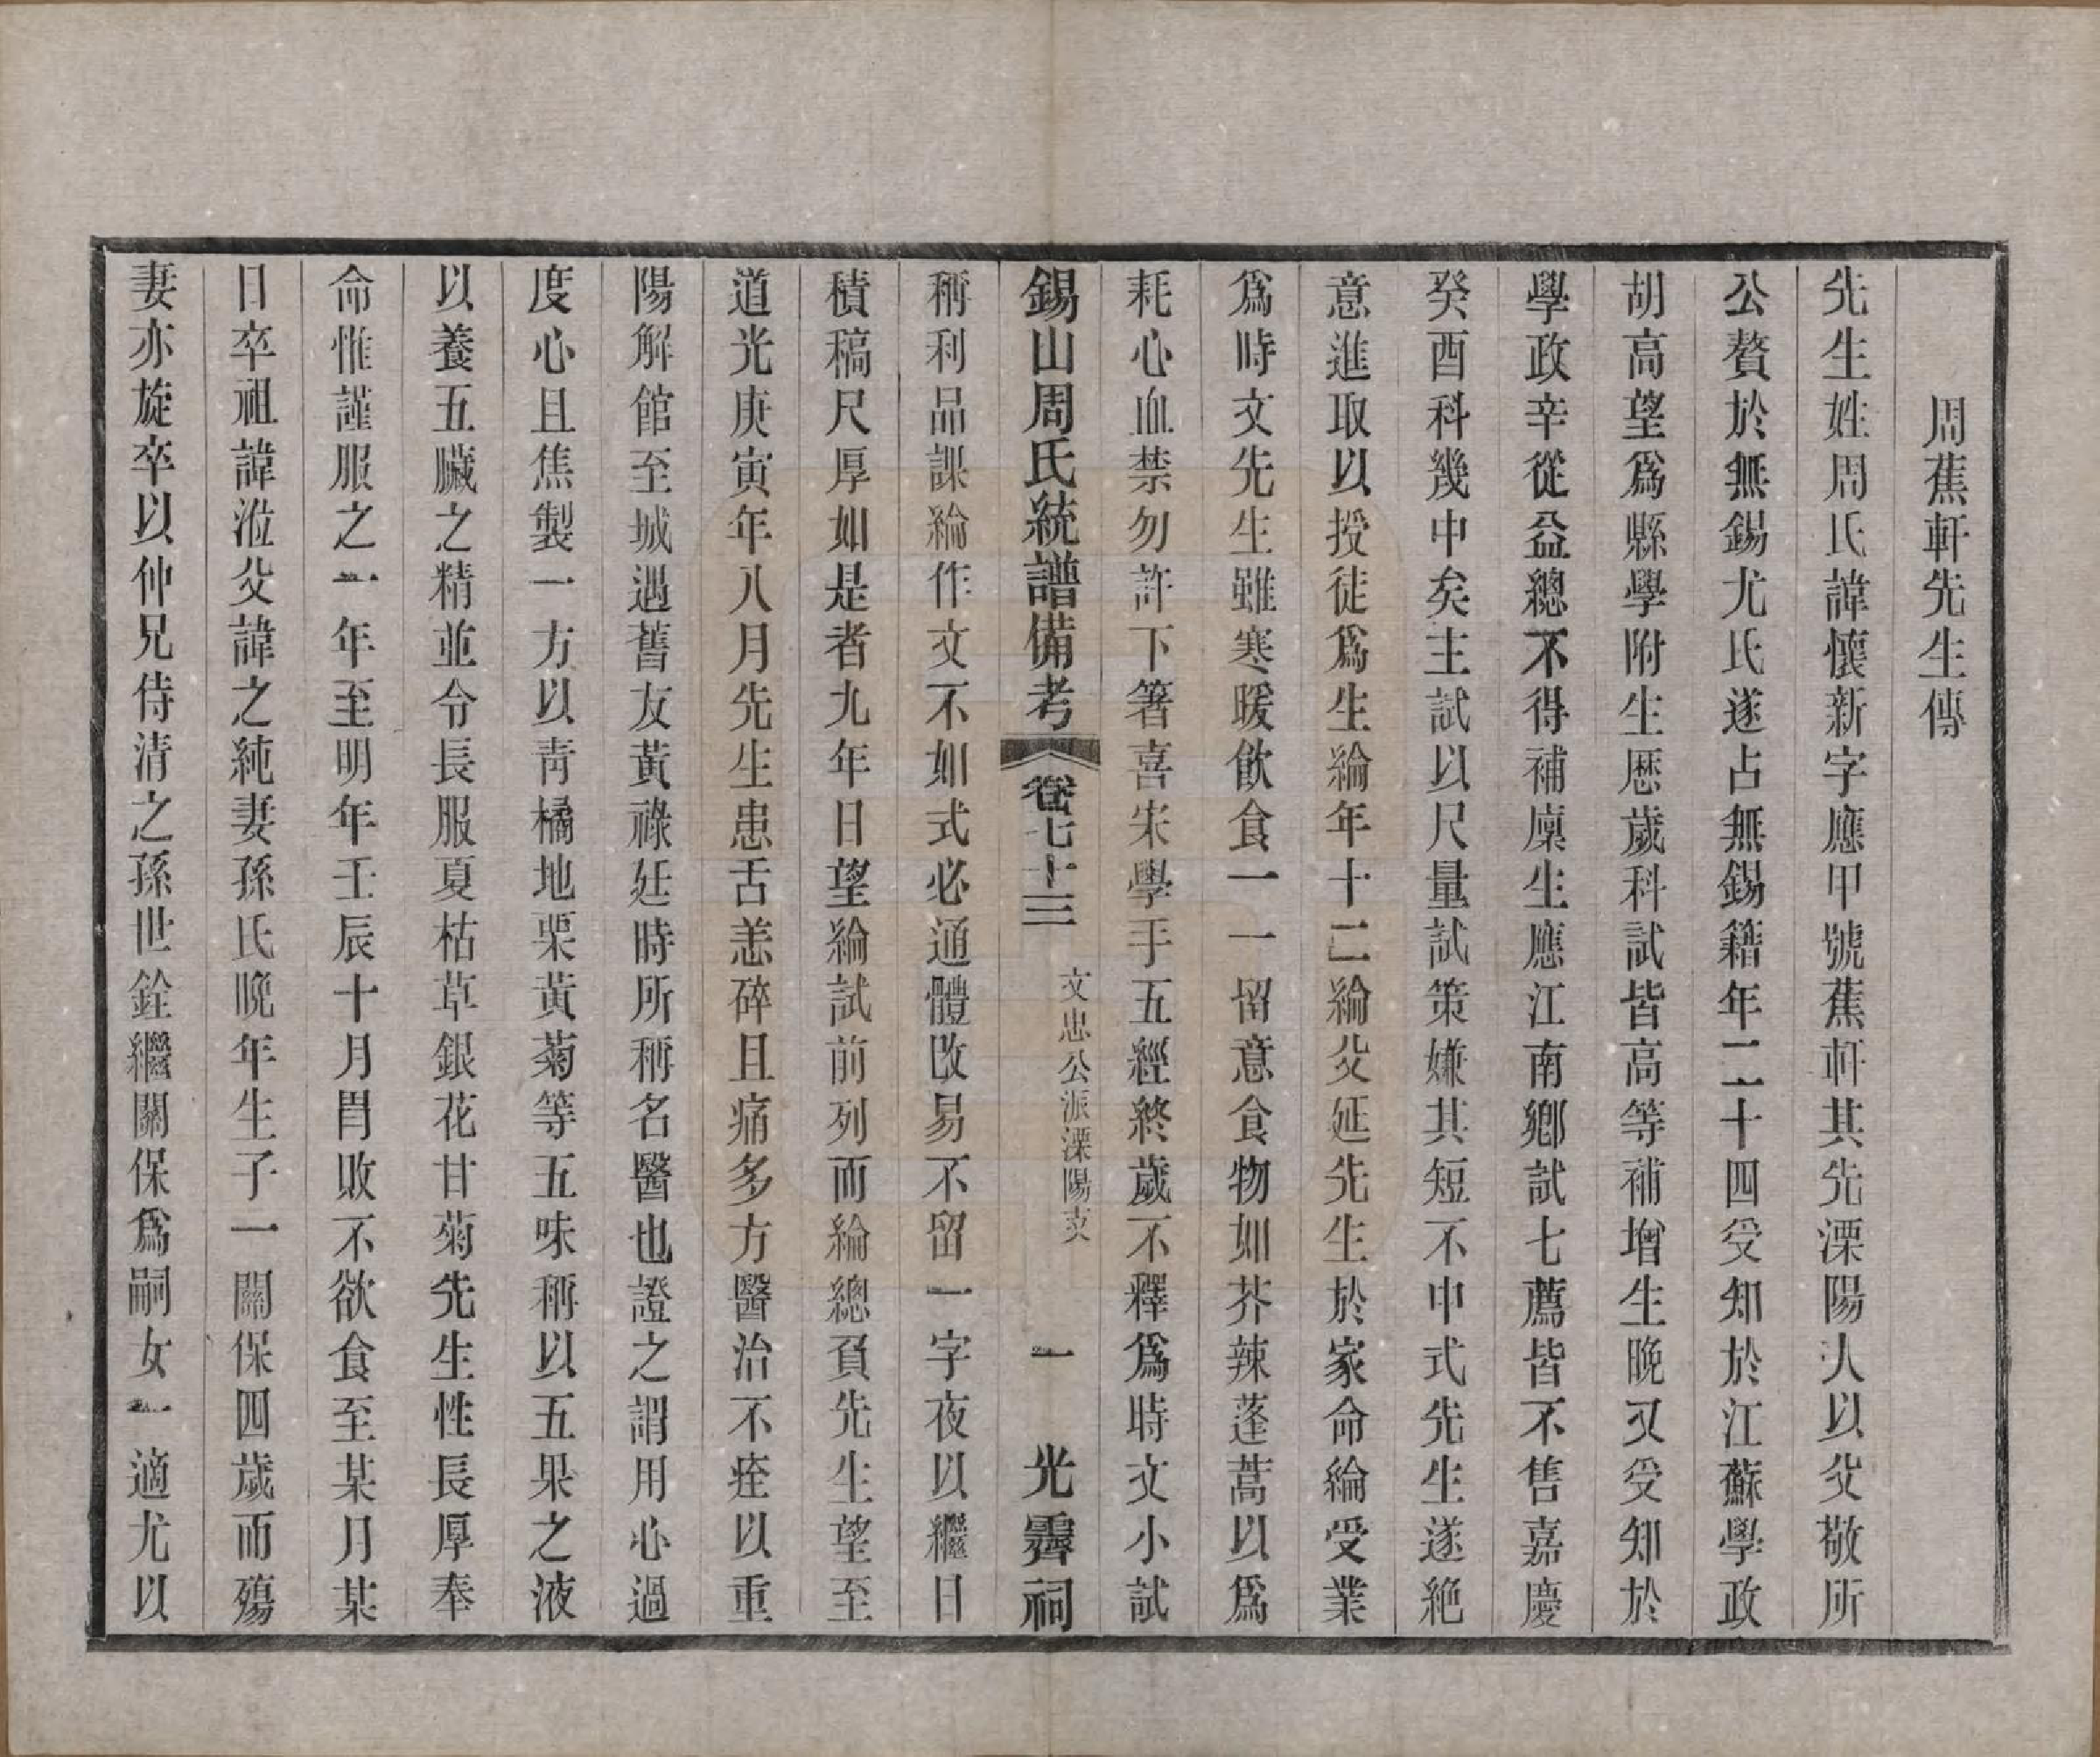 周蕉軒先生傳
先生姓周氏諱懷新字應甲號蕉軒其先溧陽人以父敬所
公贅於無錫尤氏遂占無錫籍年二十四受知於江蘇學政
胡高望爲縣學附生歷歲科試皆高等補增生晚又受知於
學政辛從益總不得補廩生應江南鄉試七薦皆不售嘉慶
癸酉科幾中矣主試以尺量試策嫌其短不中式先生遂絶
意進取以授徒爲生綸年十二綸父延先生於家命綸受業
爲時文先生雖寒暖飲食一一留意食物如芥辣蓬蒿以爲
耗心血禁勿許下箸喜宋學手五經終歲不釋爲時文小試
錫山周氏統譜備考 卷七十三 文忠公派溧陽支 一 光霽祠
稱利品課綸作文不如式必通體改易不留一字夜以繼日
積稿尺厚如是者九年日望綸試前列而綸總負先生望至
道光庚寅年八月先生患舌恙碎且痛多方醫治不痊以重
陽解館至城遇舊友黃祿廷時所稱名醫也證之謂用心過
度心且焦製一方以靑橘地栗黃菊等五味稱以五果之液
以養五臟之精並令長服夏枯草銀花甘菊先生性長厚奉
命惟謹服之一年至明年壬辰十月胃敗不欲食至某月某
日卒祖諱涖父諱之純妻孫氏晚年生子一關保四歲而殤
妻亦旋卒以仲兄侍清之孫世銓繼關保爲嗣女一適尤以